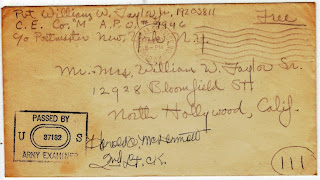 Pvt William W. Taylor Jr, 19203811
C.E. Co. "M" A.P.O. 7996
c/o Postmaster New York, N.Y.
Free
Mr. Mrs. William W. Taylor Sr.
12928 Bloomfield St
North Hollywood, Calif.
PASSED BY
U 37182 S
ARMY EXAMINER
2nd Lt.
(111)